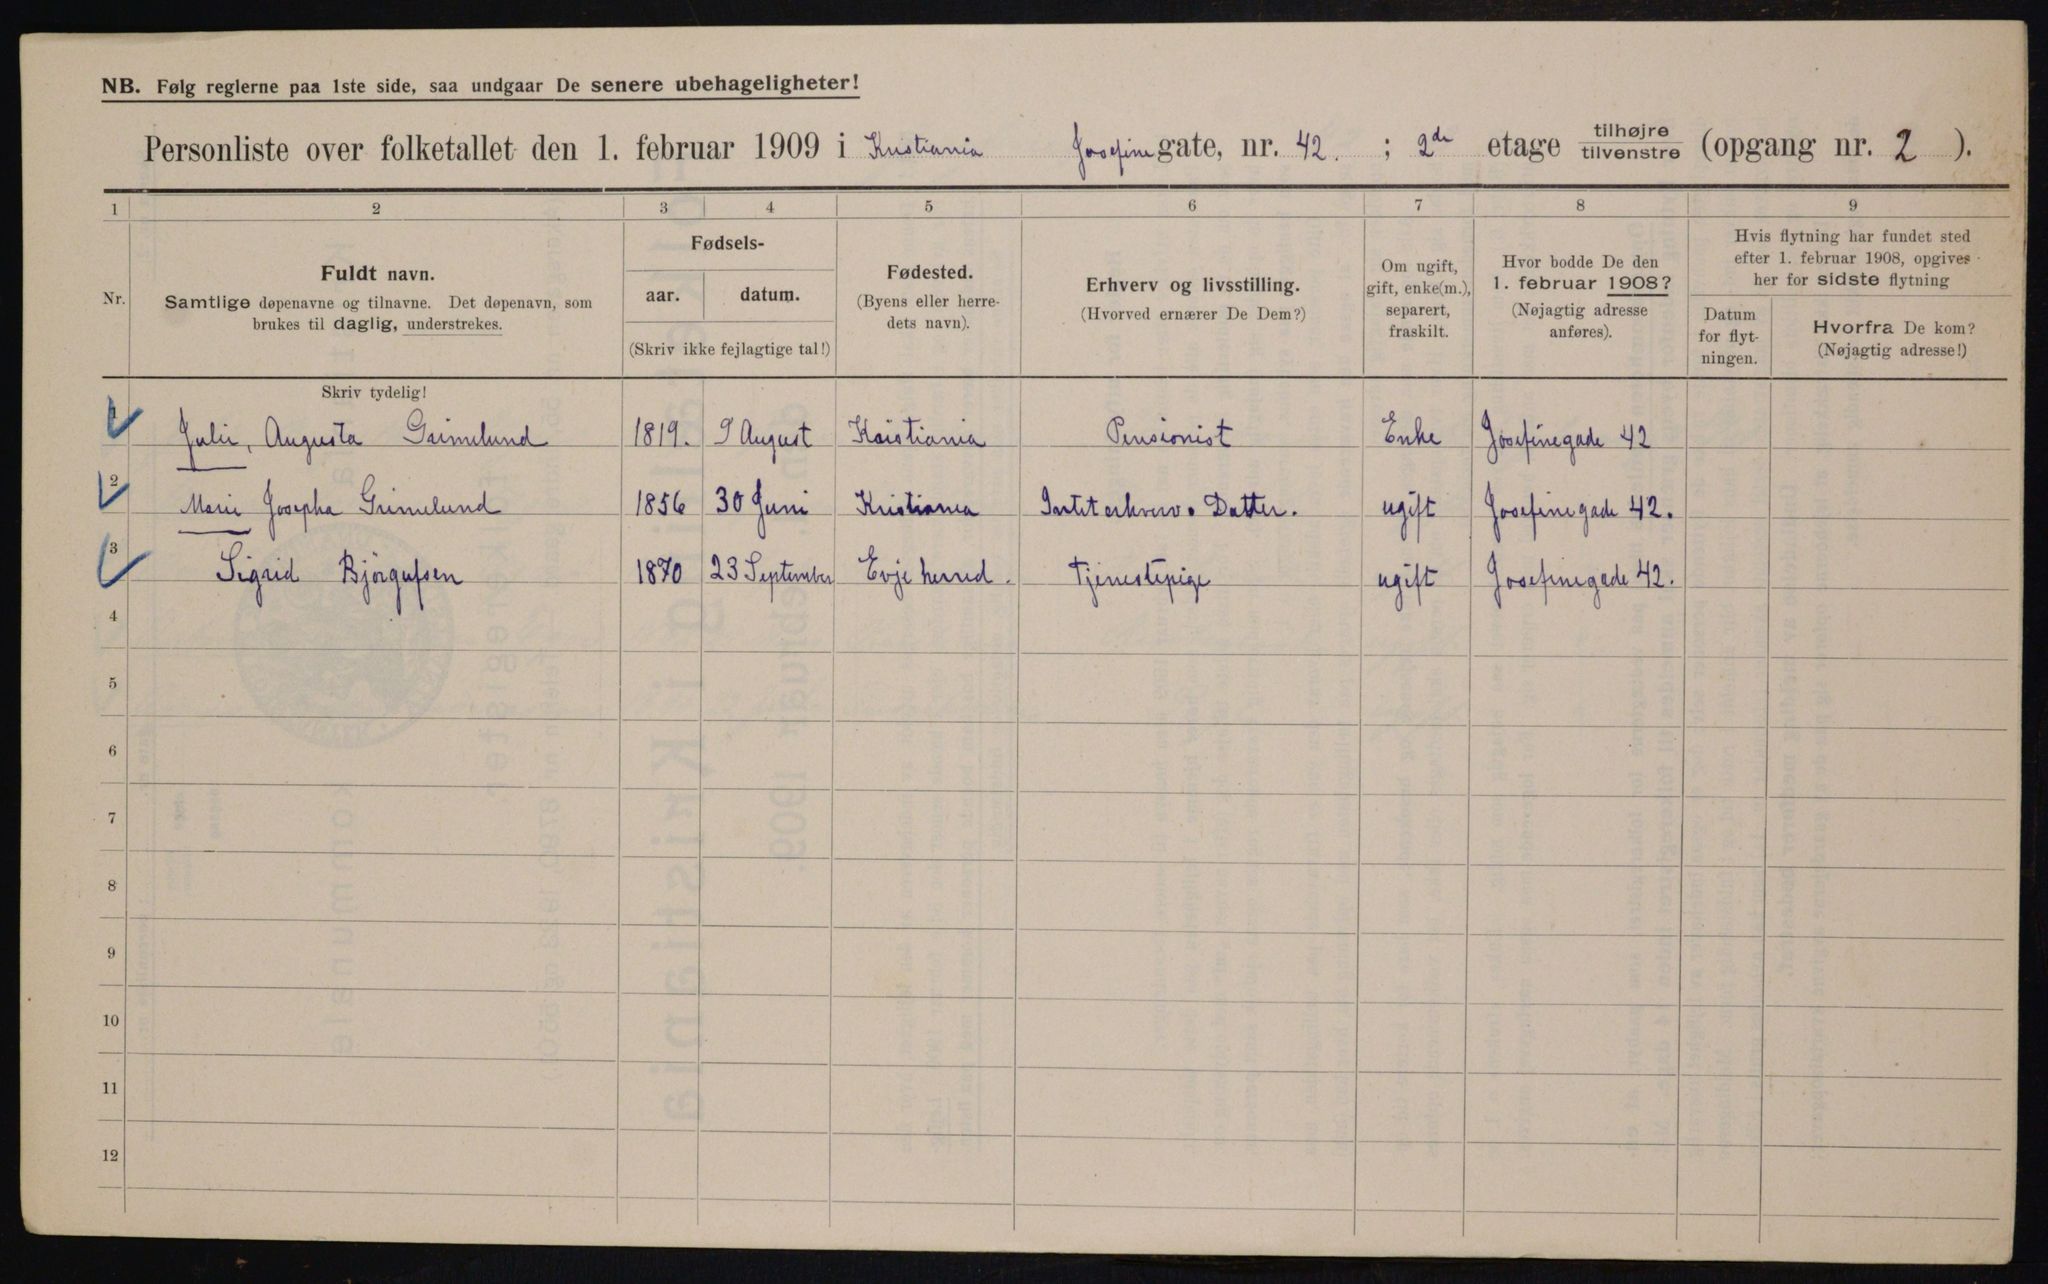 NB. Følg reglerne paa 1ste side, saa undgaar De senere ubehageligheter!
Personliste over folketallet den 1. februar 1909 i Kristiania Josefine gate, nr. 42. ; 2de etage tilhøjre/tilvenstre (opgang nr. 2 ).
1 2 3 4 5 6 7 8 9
Nr.
Fuldt navn.
Samtlige døpenavne og tilnavne. Det døpenavn, som
brukes til daglig, understrekes.
Fødsels-
aar. datum.
(Skriv ikke fejlagtige tal!)
Fødested.
(Byens eller herre-
dets navn).
Erhverv og livsstilling.
(Hvorved ernærer De Dem?)
Om ugift,
gift, enke(m.),
separert,
fraskilt.
Hvor bodde De den
1. februar 1908?
(Nøjagtig adresse
anføres).
Hvis flytning har fundet sted
efter 1. februar 1908, opgives
her for sidste flytning
Datum
for flyt-
ningen.
Hvorfra De kom?
(Nøjagtig adresse!)
Skriv tydelig!
1 Julie, Augusta Grimelund 1819. 9 August Kristiania Pensionist Enke Josefinegade 42
2 Marie Josepha Grimelund 1856 30 Juni Kristiania Intet erhverv. Datter. ugift Josefinegade 42.
3 Sigrid Bjørgufsen 1870 23 September Evje herred. Tjenestepige ugift Josefinegade 42.
4
5
6
7
8
9
10
11
12